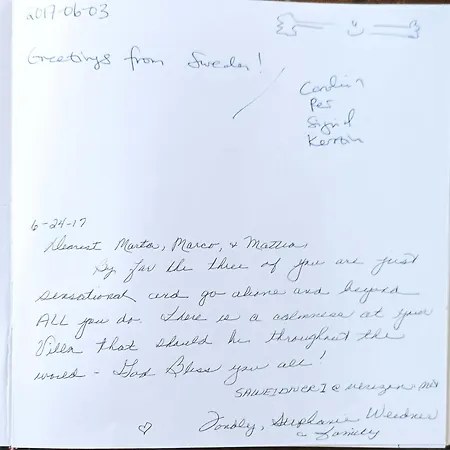 2017-06-03
Greetings from Sweden!
Per
Sigrid
Kerstin
6-24-17
Dearest Marta, Marco, & Mattia,
By far the three of you are just
sensational and go above and beyond
ALL you do. There is a calmness at your
Villa that should be throughout the
world - God Bless you all!
Fondly, Stephanie Weidner
& Family